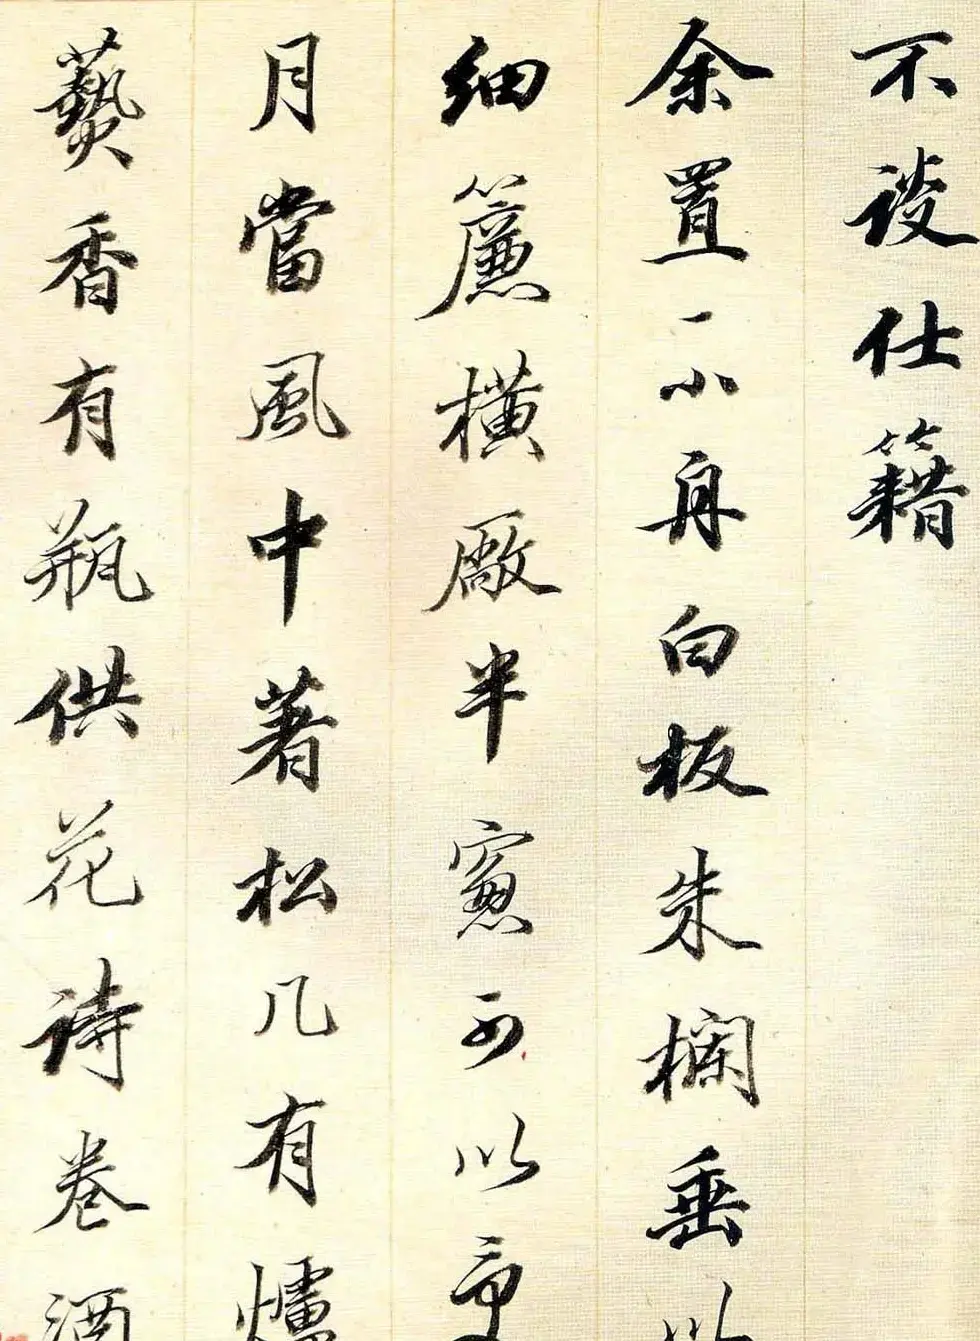 不談仕籍
余置一小舟白板朱欄垂以
細簾橫厰半窻可以
月當風中著松几有爐
爇香有瓶供花詩卷酒